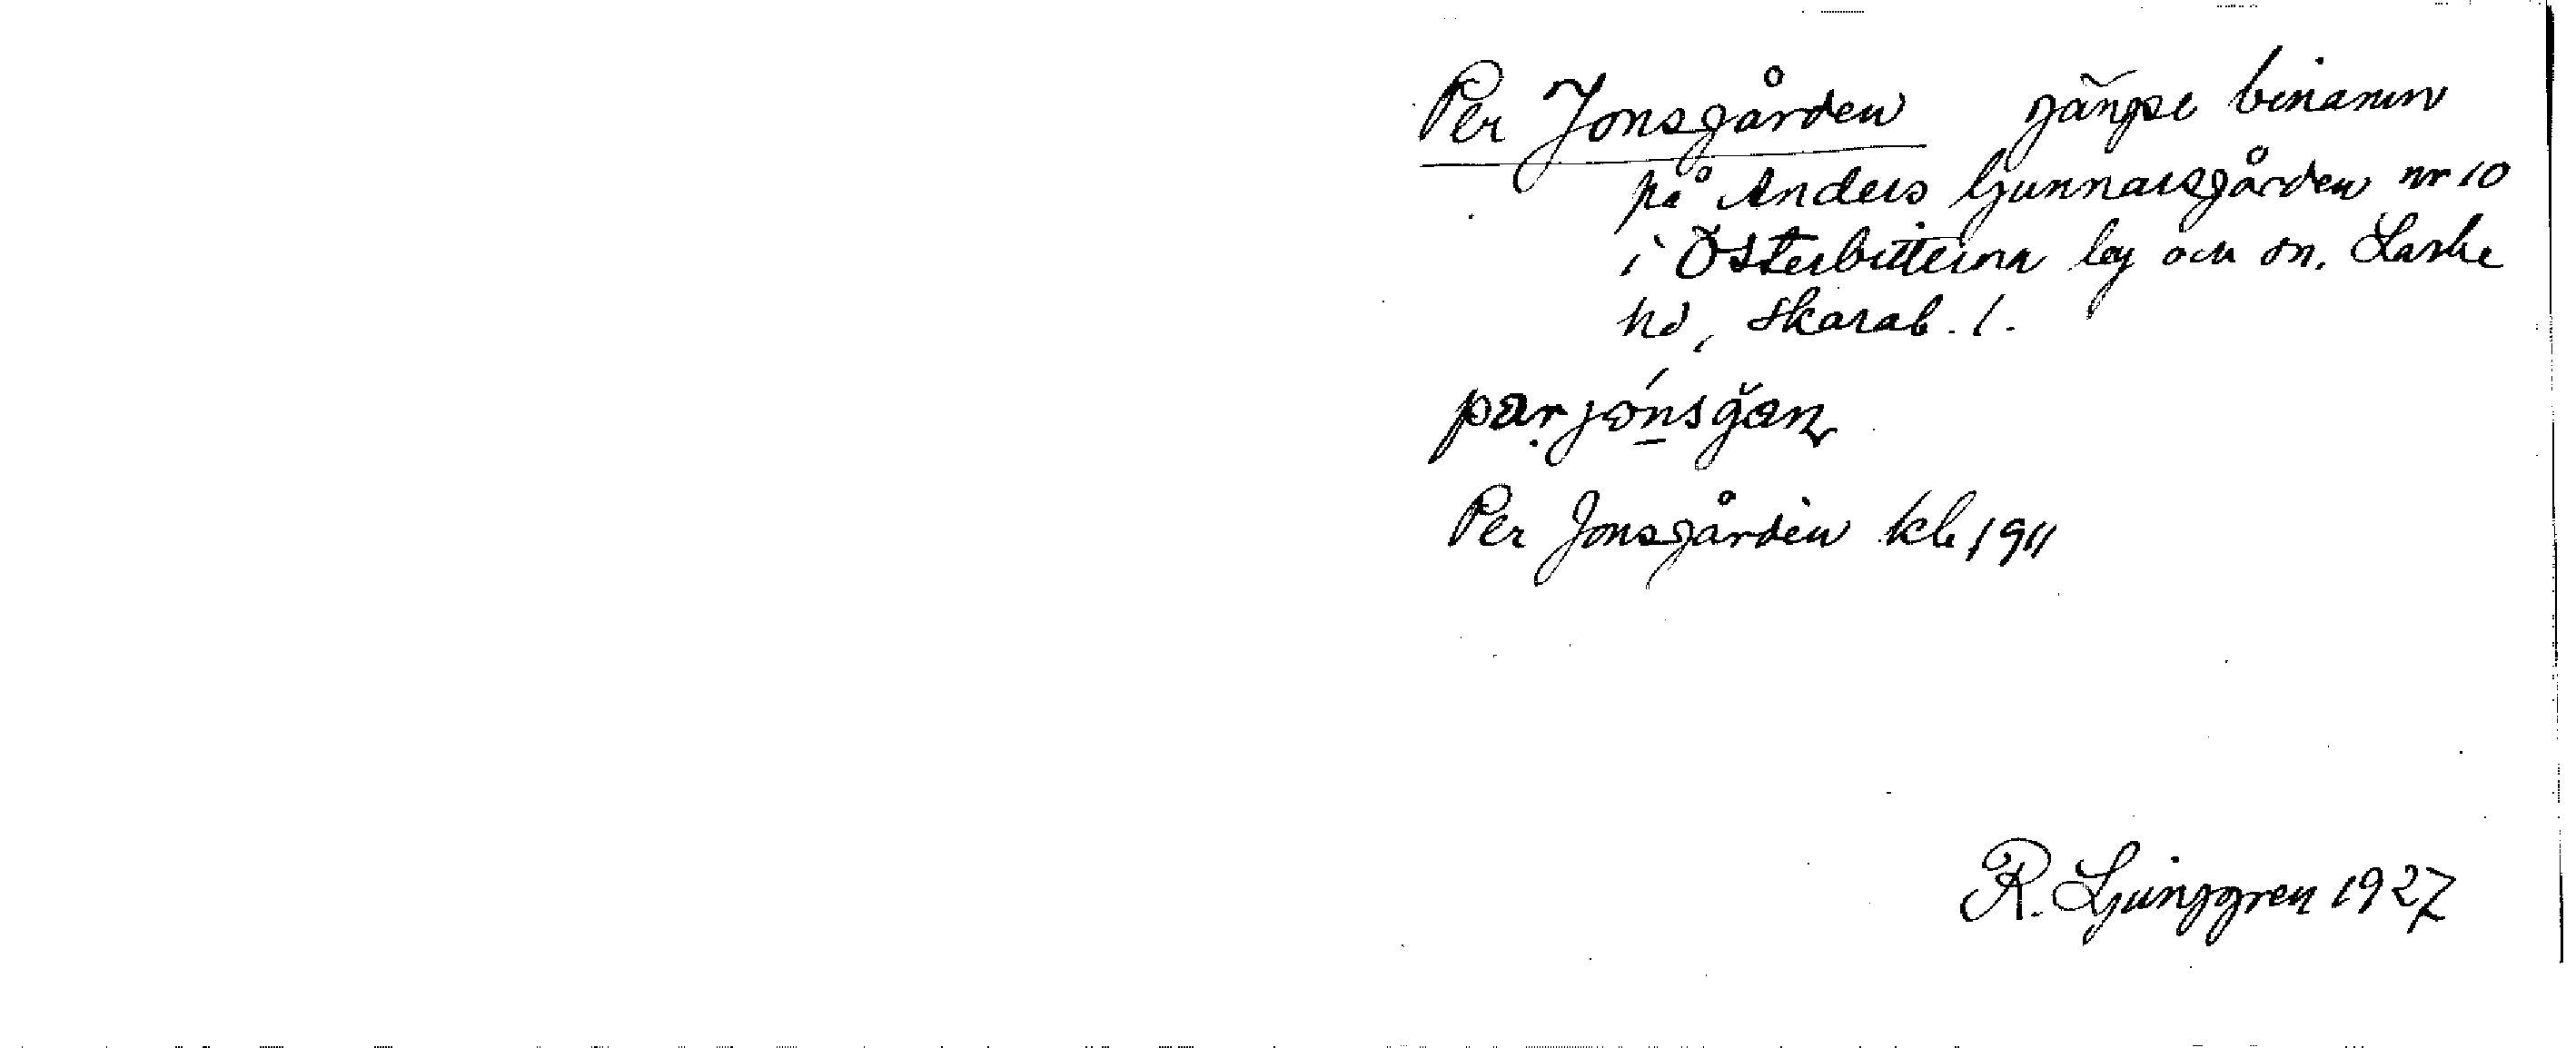 Per Jonsgården gängse binamn
på Anders Gunnarsgården nr 10
i Österbitterna by och sn. Laske
hd, Skarab. l.
Per Jonsgården kb 1911
R. Ljunggren 1927